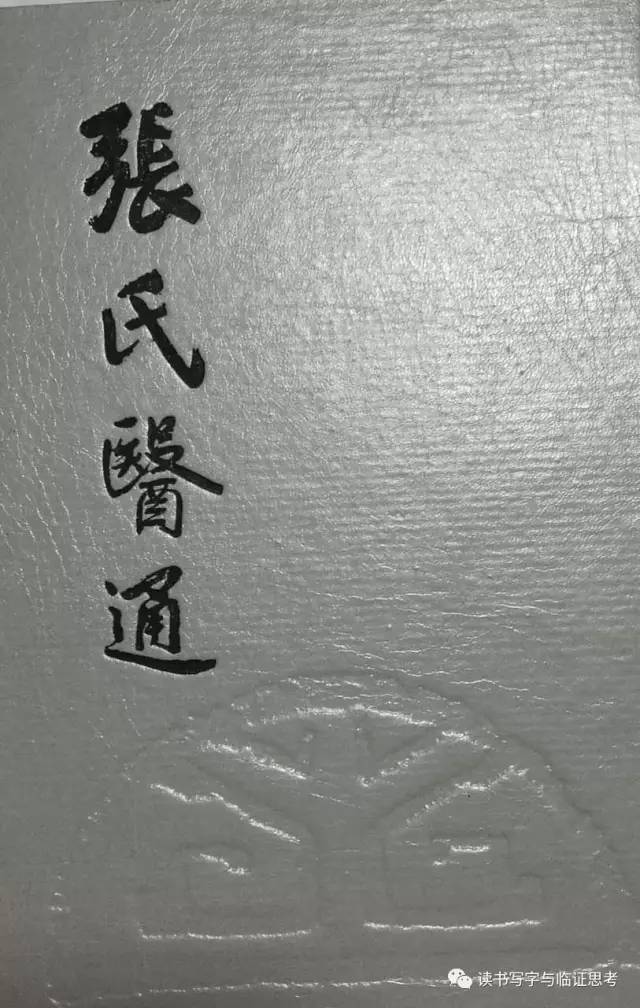 張氏醫通
读书写字与临证思考